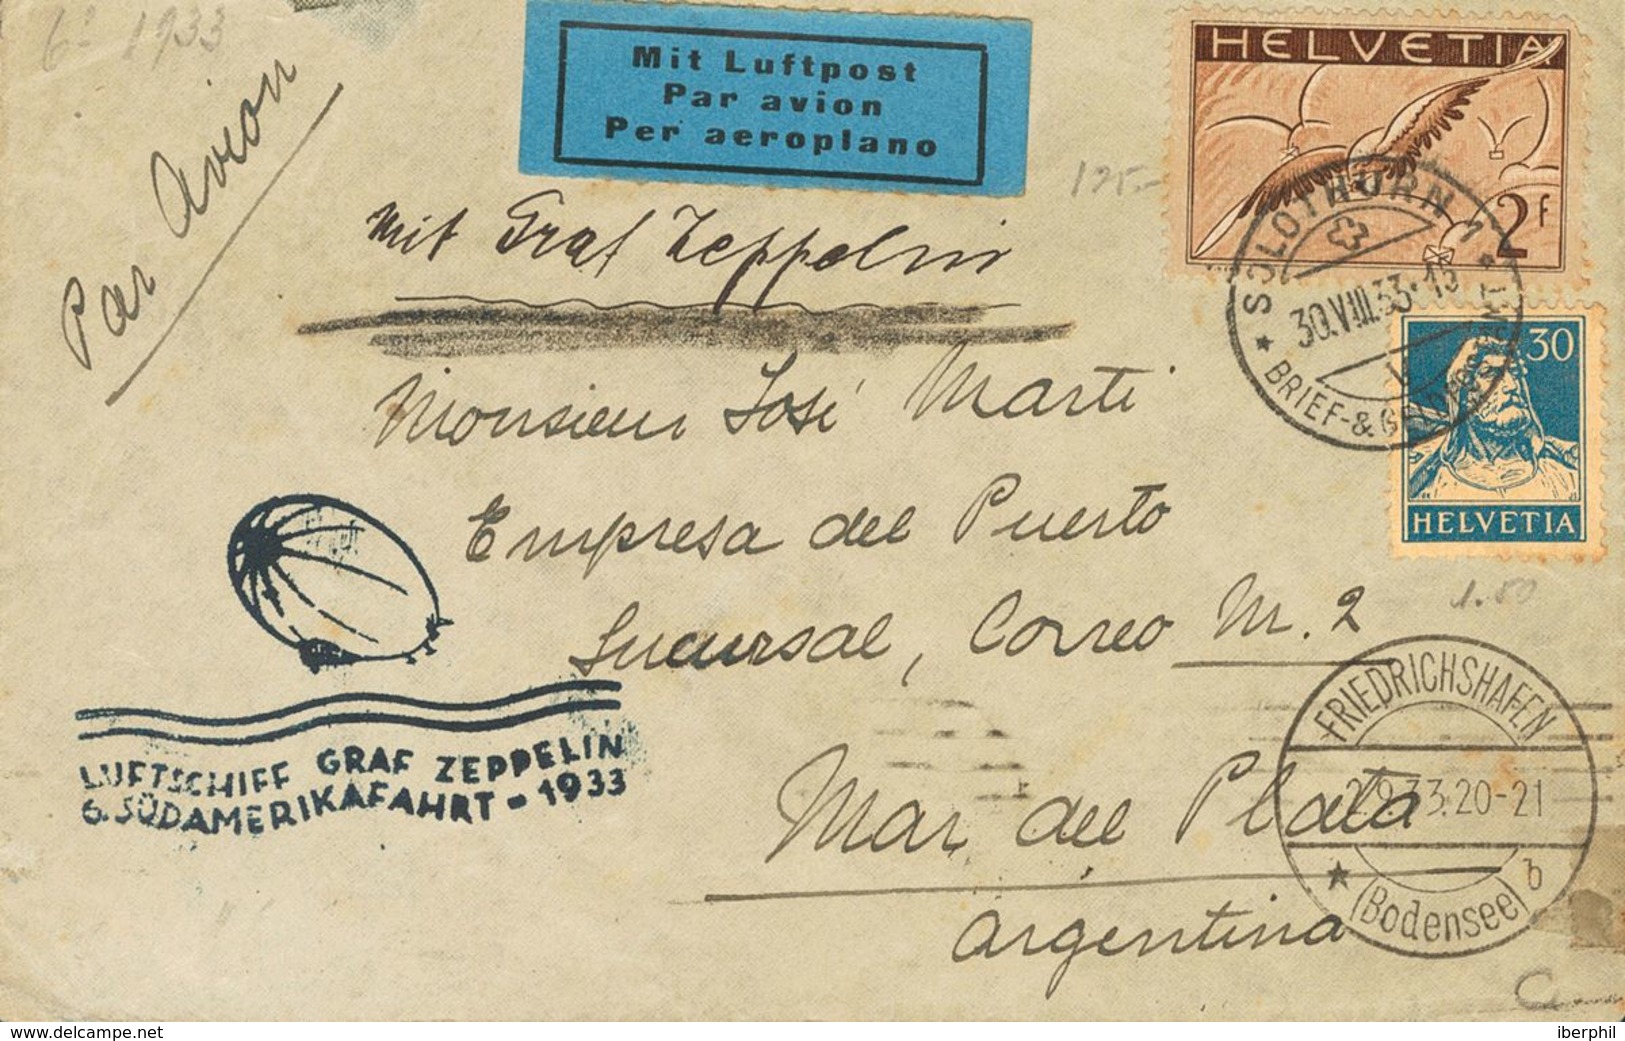 6ª 1933
Par Avion
Mit Luftpost
Par avion
Per aeroplano
HELVETIA
2F
175.-
mit Graf Zeppelin
SOLOTHURN 1
30.VIII.33.-15
BRIEF-&
30
HELVETIA
Monsieur José Marti
Empresa del Puerto
Sucursal, Correo M. 2
1.80
LUFTSCHIFF GRAF ZEPPELIN
6. SÜDAMERIKAFAHRT - 1933
Mar del Plata
Argentina
FRIEDRICHSHAFEN
2.9.33.20-21
b
(Bodensee)
delcampe.net
iberphil